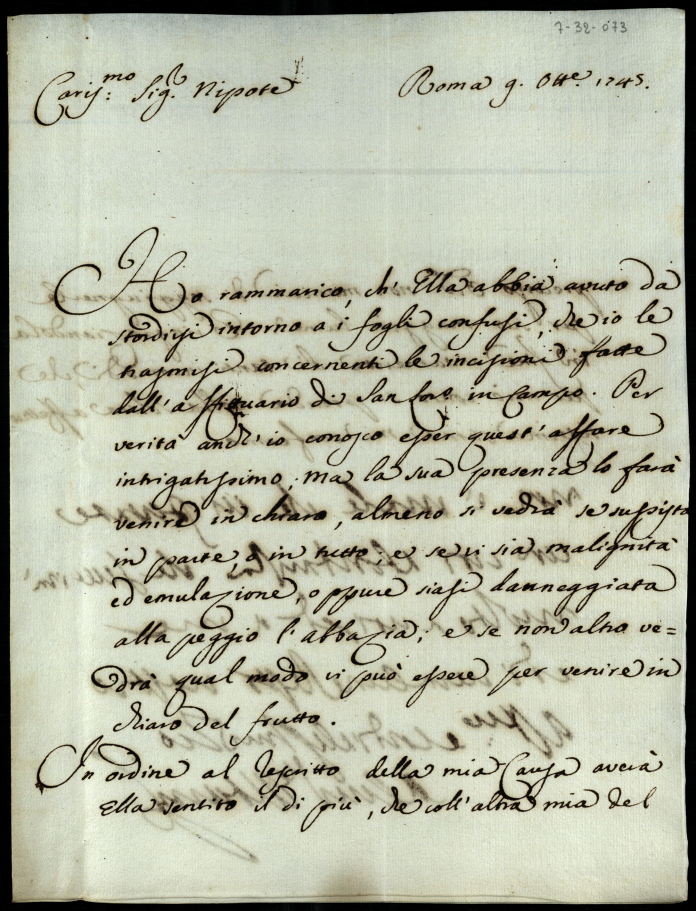 7-32-073
Caris:mo Sig.r Nipote
Roma 9. Ott.e 1745.
Ho rammarico, ch' Ella abbia avuto da
stordirsi intorno a i fogli confusi, che io le
trasmisi concernenti le incisioni fatte
dall'affittuario di San in Campo. Per
verità anch'io conosco esser quest'affare
intrigatissimo, ma la sua presenza lo farà
venire in chiaro, almeno si vedrà se sussista
in parte, o in tutto: e se vi sia malignità
ed emulazione, oppure siasi danneggiata
alla peggio l'abbazia; e se non altro ve=
drà qual modo vi può essere per venire in
chiaro del frutto.
In ordine al Rescritto della mia Causa averà
Ella sentito il di più, che coll'altra mia del